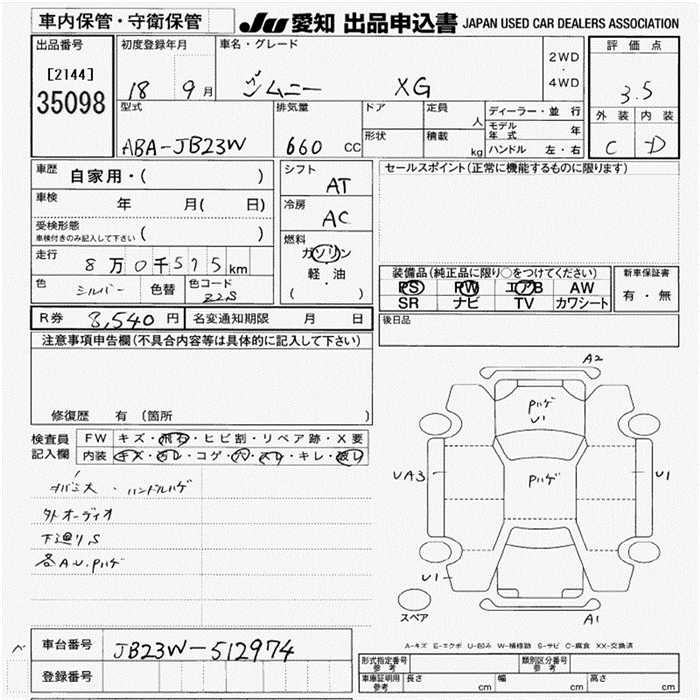 車内保管・守衛保管
JU 愛知 出品申込書 JAPAN USED CAR DEALERS ASSOCIATION
出品番号
[2144]
35098
初度登録年月
18 9月
車名・グレード
ジムニー XG
2WD
・
4WD
評価点
3.5
外装 内装
C D
型式
ABA-JB23W
排気量
660 CC
ドア
定員
人
形状
積載
kg
ディーラー・並 行
モデル年式 年
ハンドル 左・右
車歴 自家用・( )
車検 年 月( 日)
受検形態
車検付きのみ記入して下さい ( )
走行 8万0千575km
色 シルバー 色替 色コード Z2S
シフト
AT
冷房
AC
燃料
ガソリン
軽・油
( )
セールスポイント(正常に機能するものに限ります)
装備品(純正品に限り○をつけてください)
PS PW エアB AW
SR ナビ TV カワシート
新車保証書
有・無
R券 8,540円 名変通知期限 月 日
後日品
注意事項申告欄(不具合内容等は具体的に記入して下さい)
修復歴 有(箇所 )
検査員記入欄
FW キズ・飛石・ヒビ割・リペア跡・X要
内装 キズ・ヨレ・コゲ・穴・スレ・キレ・破レ
タバミ大・ハンドルハゲ
外オーディオ
下廻りS
各A.U.Pハゲ
A2
Pハゲ
U1
Pハゲ
UA3
U1
U1
A1
スペア
A-キズ E-エクボ U-凹み W-補修跡 S-サビ C-腐食 XX-交換済
車台番号 JB23W-512974
登録番号
型式指定番号
参考
類別区分番号
参考
車庫証明用
参考
長さ cm 幅 cm 高さ cm